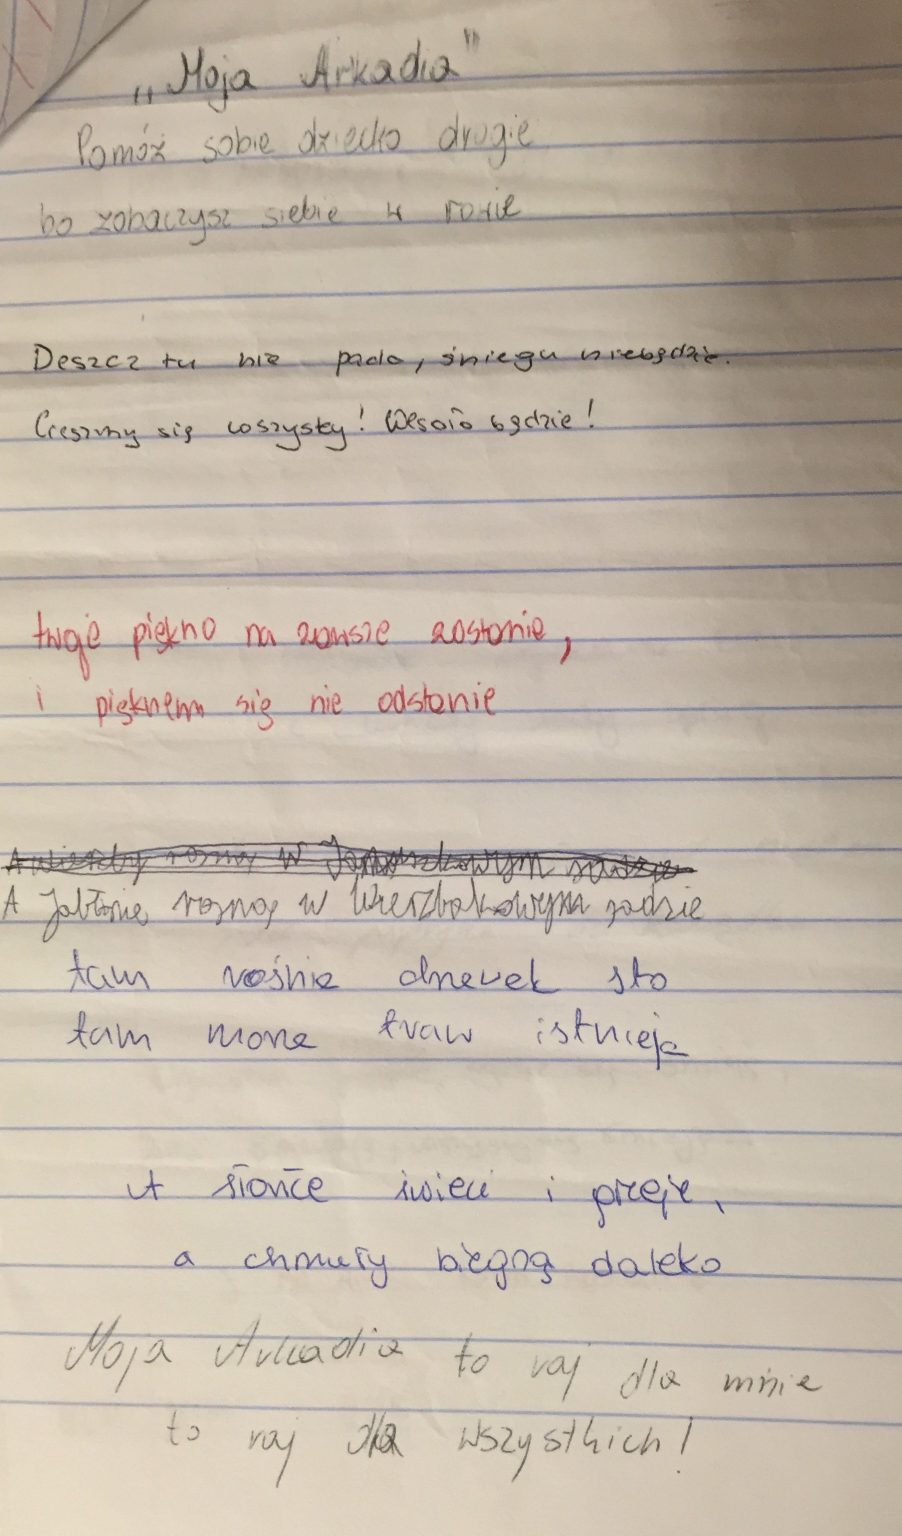 „Moja Arkadia"
Pomóż sobie dziecko drogie
bo zobaczysz siebie w rowie
Deszcz tu nie pada, śniegu niebędzie.
Cieszmy się wszyscy! Wesoło będzie!
twoje piękno na zawsze zostanie,
i pięknem się nie odstanie
A wierzby rosną w Jabłuszkowym sadzie
A Jabłonie rosnąs w Wierzbakowym sadzie
tam rośnie drzewek sto
tam morze traw istnieje
A słońce świeci i grzeje,
a chmury biegną daleko
Moja Arkadia to raj dla mnie
to raj dla wszystkich!